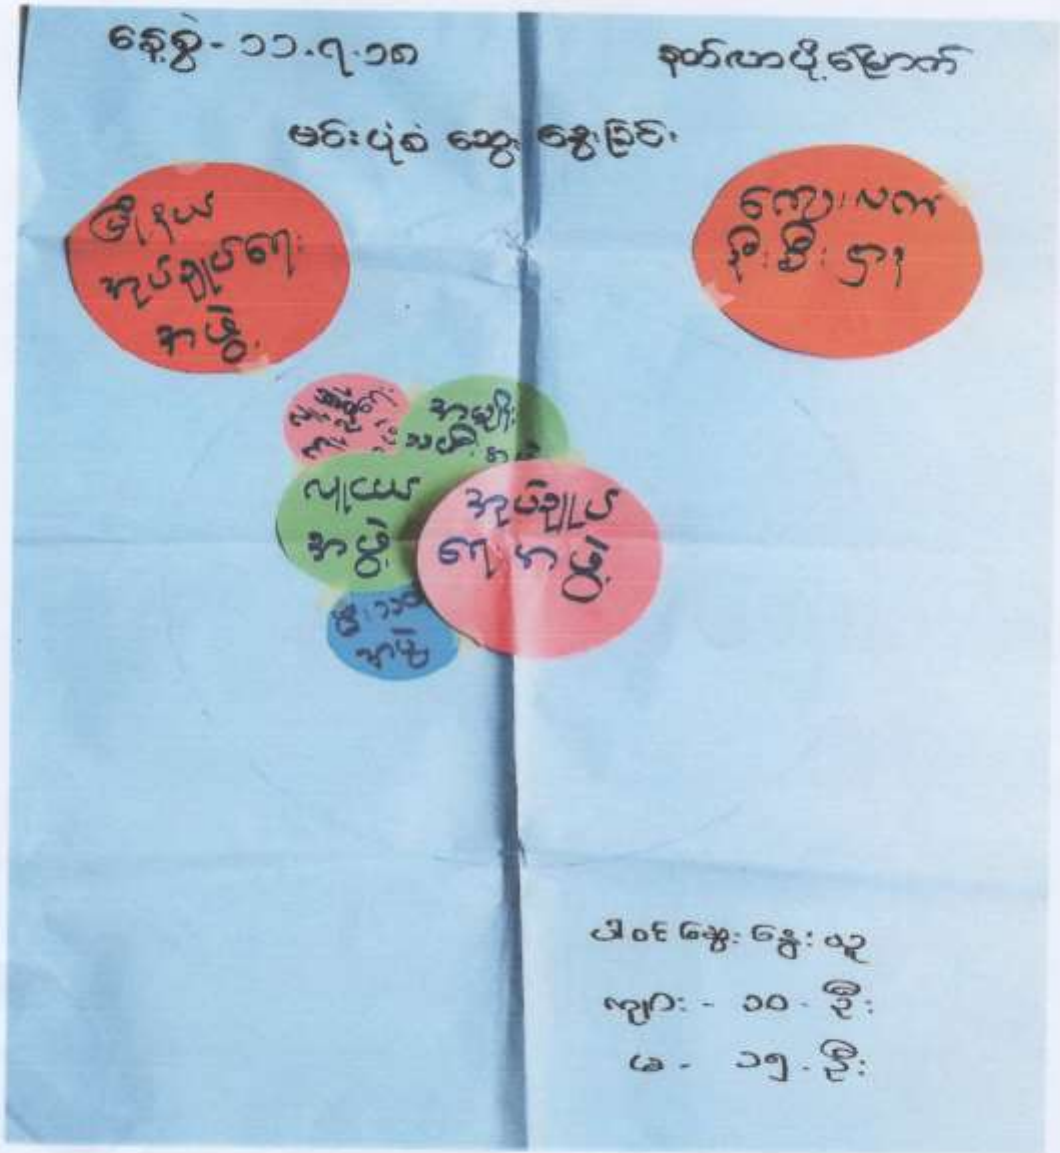 နေ့စွဲ - ၁၁.၇.၁၈
နတ်လာပို့မြောက်
ဗင်းပုံစံ ဆွေး နွေးခြင်း
မြို့နယ်
အုပ်ချုပ်ရေး
အဖွဲ့
ကျေးလက်
ဦးစီးဌာန
အမျိုး
လူငယ်
အဖွဲ့
အုပ်ချုပ်
ရေးအဖွဲ့
အဖွဲ့
ပါဝင် ဆွေး နွေး သူ
ကျား - ၁၀ - ဦး
မ - ၁၅ - ဦး